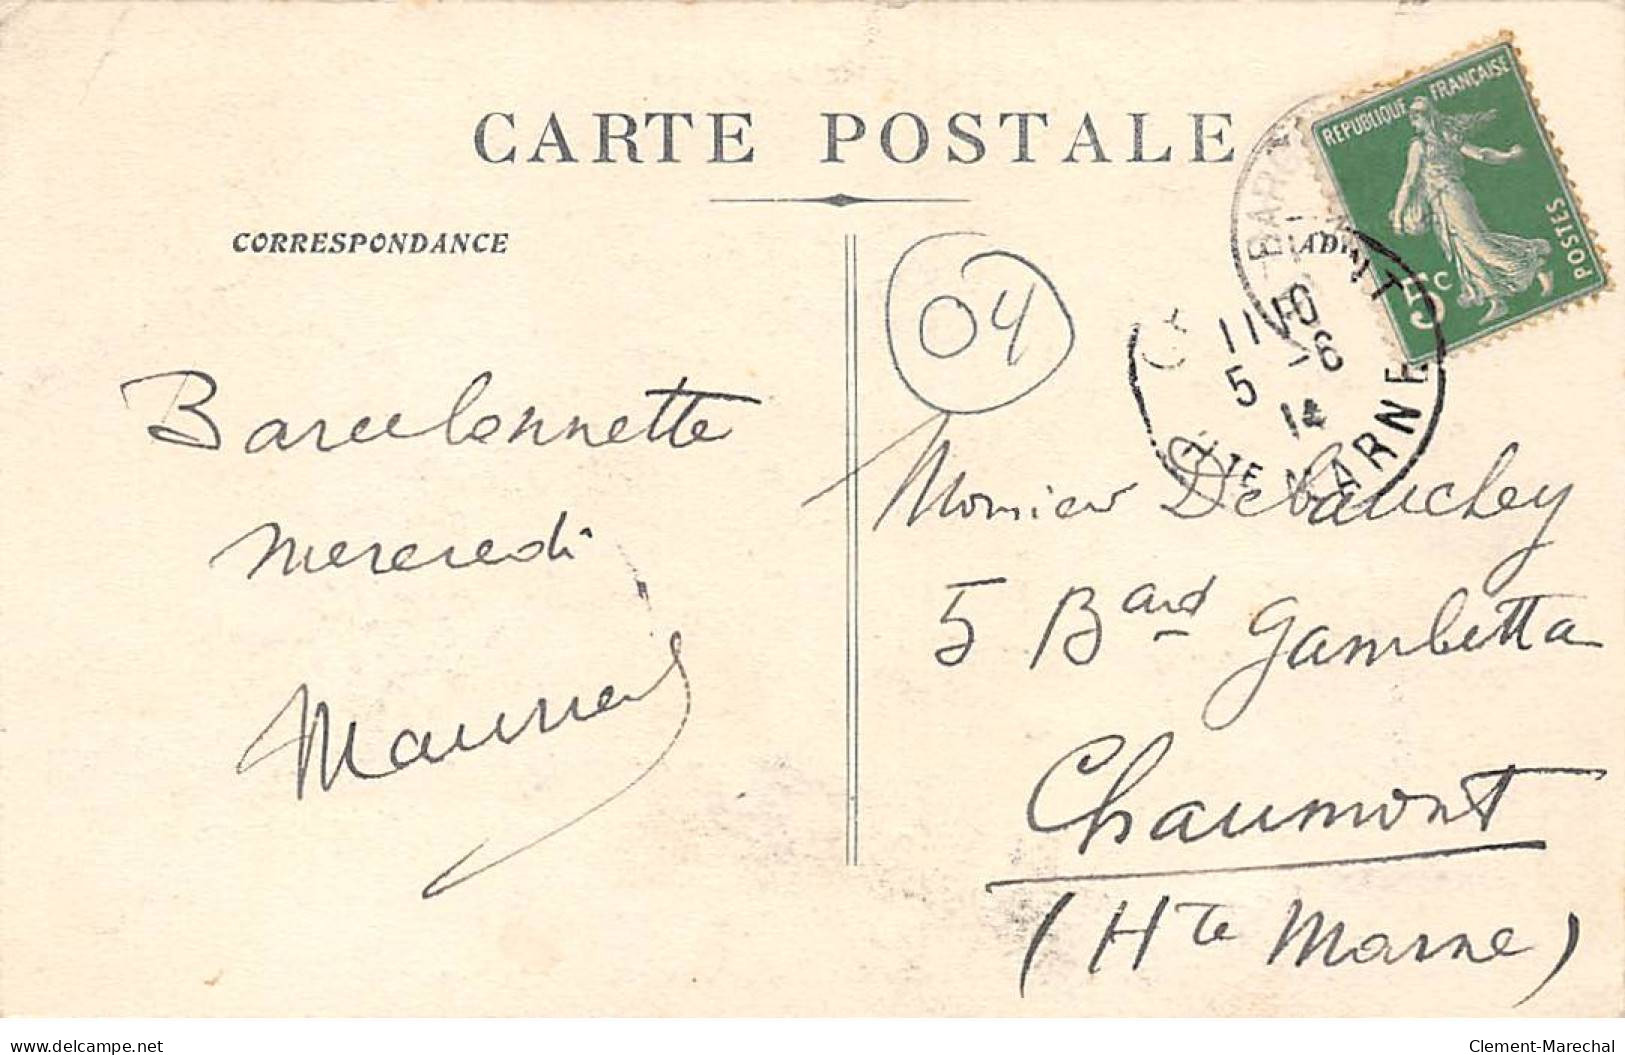 CARTE POSTALE
CORRESPONDANCE
AD
REPUBLIQUE FRANÇAISE
POSTES
5c
BARC
11 10
5 -6
14
HTE MARNE
04
Barcelonnette
mercredi
Monsieur Debauchey
5 Bard Gambetta
Chaumont
(Hte Marne)
www.delcampe.net
Clement-Marechal